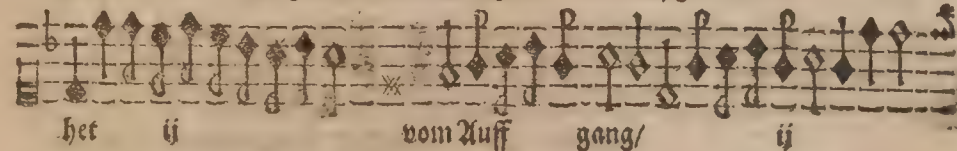 het ij vom Auff gang/ ij